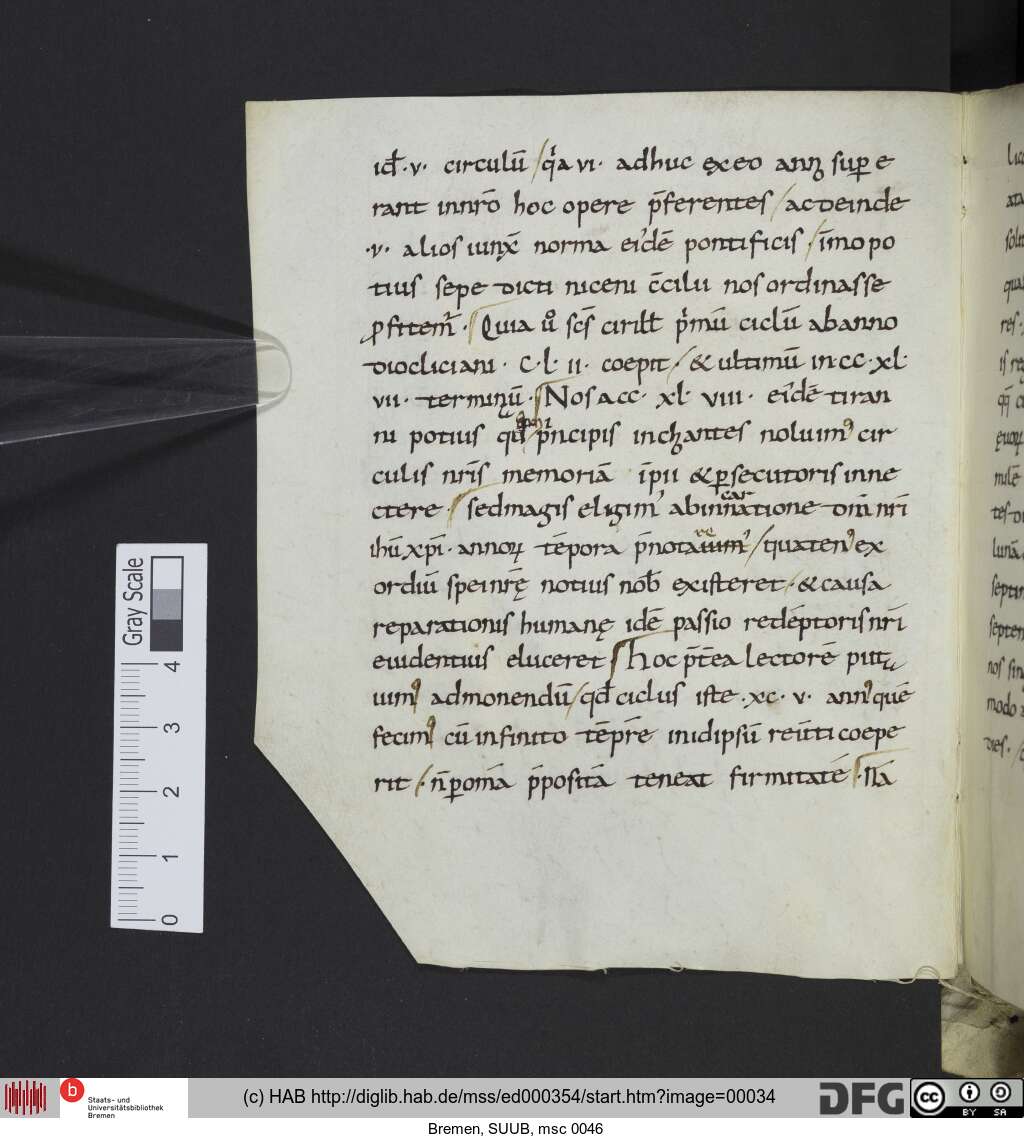 id̅ ·v· circulū qͥa vi· adhuc ex eo annꝫ supere
rant in nr̄o hoc opere p̄ferentes / ac deinde
·v· alios iunx̄ norma eiꝰdē pontificis · īmo po
tius sepe dicti niceni c̄cilii nos ordinasse
ꝓfitem̄ᷣ · Quia u̅o sc̄s cirill̅ pͥmū ciclū ab anno
diocliciani · C·l·ii· coepit / & ultimū in·cc·xl·
vii· terminꝫū · Nos a cc· xl· viii· eiꝰdē tiran
ni potius qͣ̄ pͥncipis inchꝫantes noluimꝰ cir
culis nr̄is memoriā īpii & ꝑsecutoris inne
ctere · sed magis eligimꝰ ab incarnatione dn̄i nr̄i
ih̄u xp̄i · annoꝝ tēpora p̄notare / quatenꝰ ex
ordiū spei nr̄ę notius nob̅ existeret · & causa
reparationis humanę idē passio redēptoris nr̄i
euidentius eluceret hoc p̄t̄ea lectorē puta
uimꝰ admonendū / qd̅ ciclus iste ·xc·v· annꝰ quē
fecimꝰ cū infinito tēp̄re in idipsū reūti coepe
rit / · n̄ ꝑ om̄a p̄positā teneat firmitatē · Nā
Gray Scale
4
3
2
1
0
b Staats- und
Universitätsbibliothek
Bremen
(c) HAB http://diglib.hab.de/mss/ed000354/start.htm?image=00034
DFG
cc BY SA
Bremen, SUUB, msc 0046